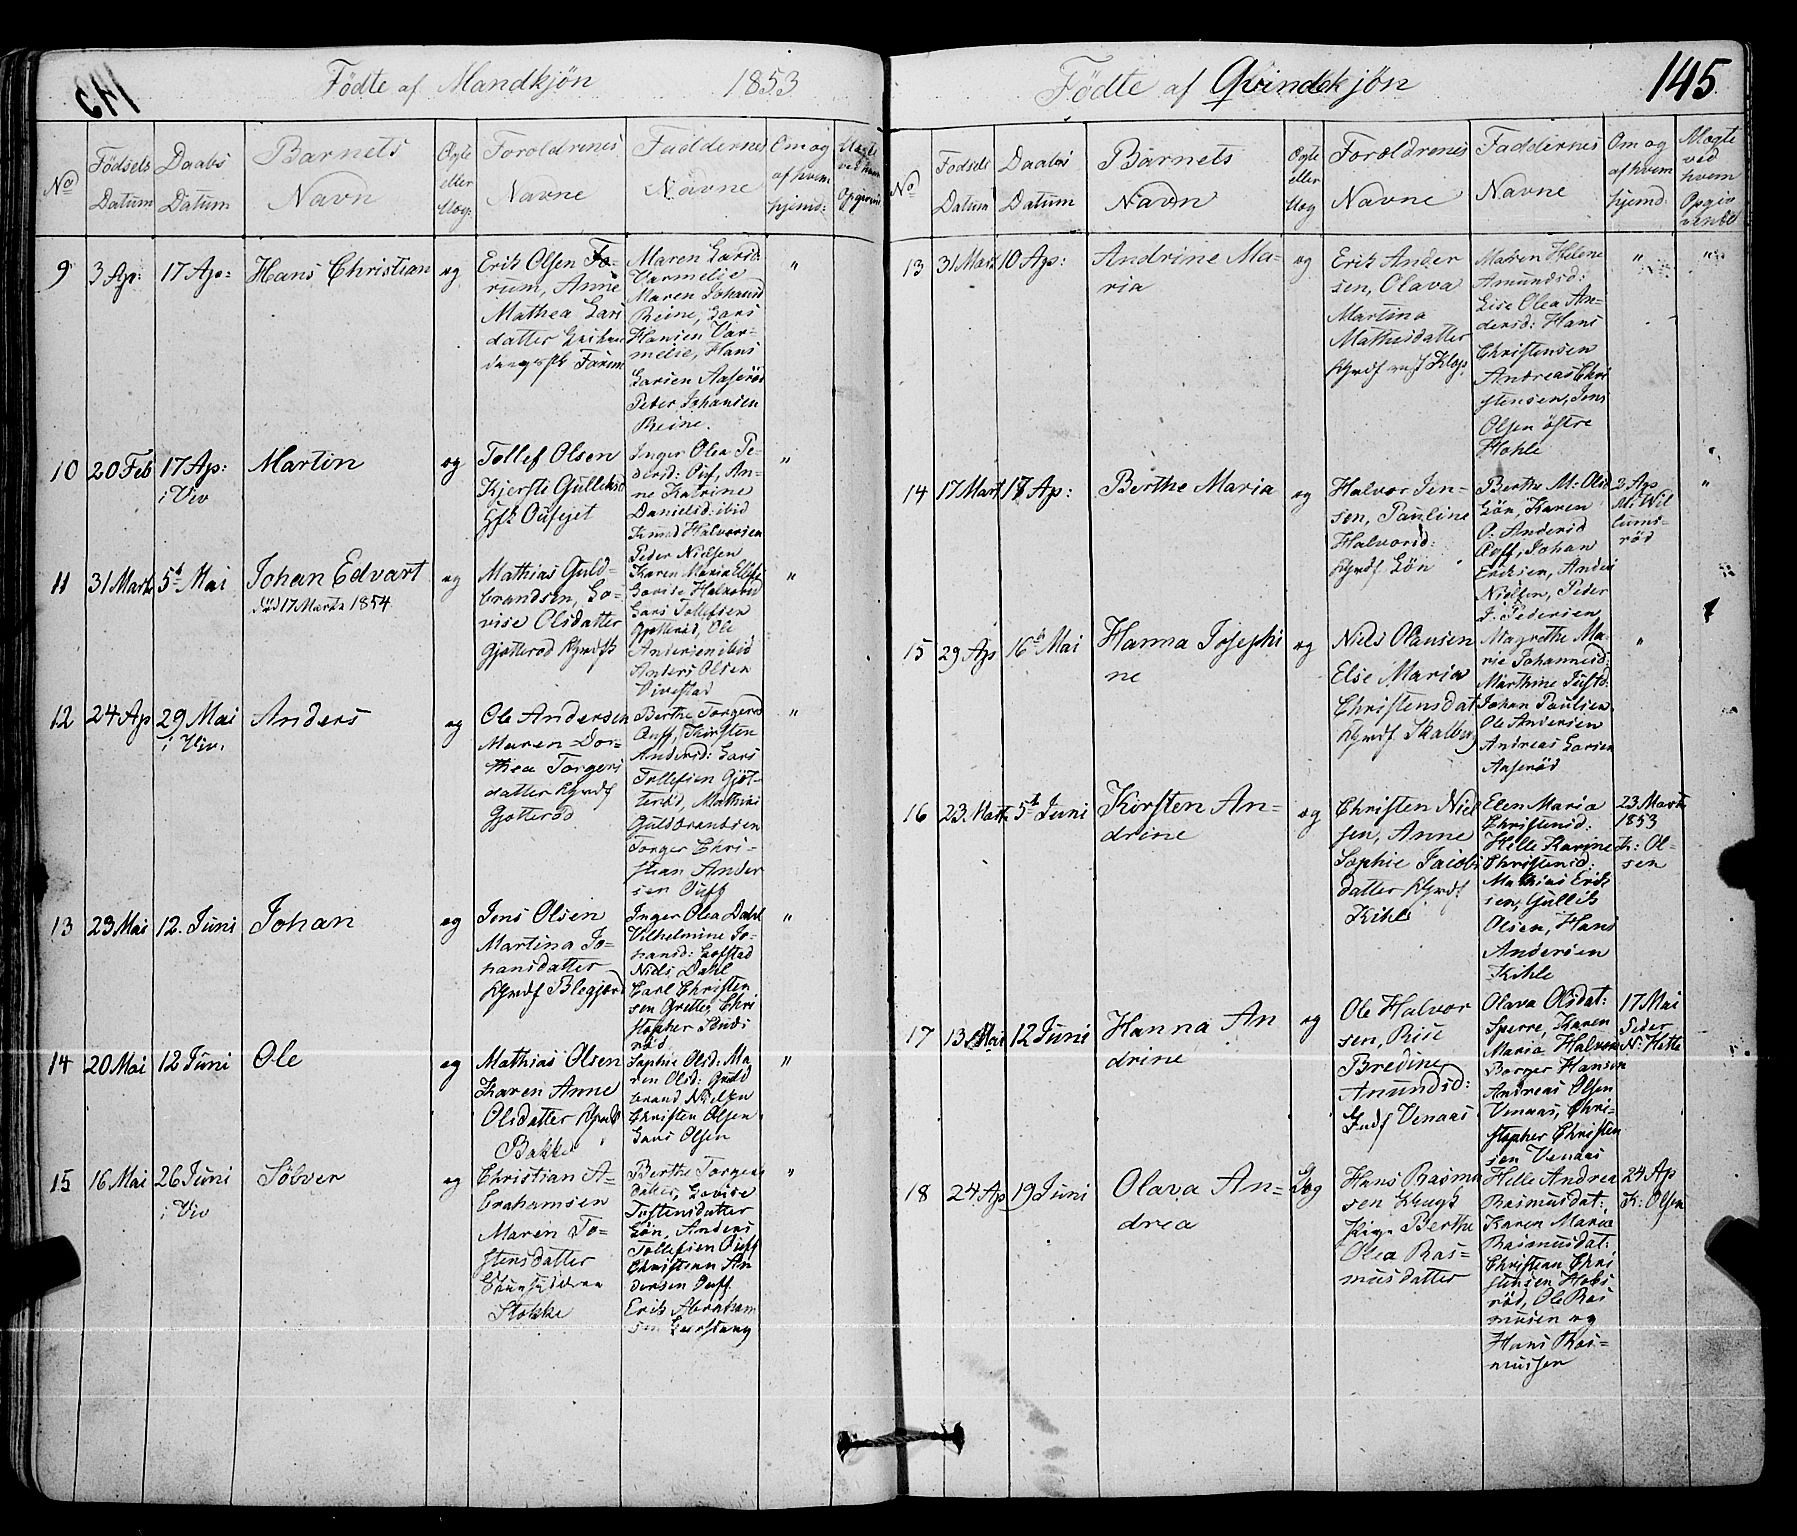 Fødte af Mandkjøn 1853
No
Fødsels Datum
Daabs Datum
Barnets Navn
Ægte eller Uæg:
Forældrenes Navne
Faddernes Navne
Om og af hvem hjemd:
9
3 Ap:
17 Ap:
Hans Christian
æg
Erik Olsen Fo-
rum, Anne
Mathea Lars
datter
Maren Larsd
Varmelie
Maren Johansd
Reine, Lars
Hansen Var-
melie, Hans
Larsen Aaserød
Peder Johansen
Reine.
"
10
20 Feb
17 Ap:
i Viv
Martin
æg
Tollef Olsen
Kjersti Gulleksd
Inger Olea Pe-
dersd: Ouf, An-
ne Katrine
Danielsd: ibid
Knud Halvorsen
Peder Nielsen
"
11
31 Marts
5t Mai
Johan Edvart
død 17 Marts 1854
æg
Mathias Guld-
brandsen, Lo-
vise Olsdatter
Gjøtterød
Karen Maria
Lovise Halvorsd
Lars Tollefsen
Gjøtterød, Ole
Andersen ibid
Anders Olsen
Virestad
"
12
24 Ap
29 Mai
i Viv.
Anders
æg
Ole Andersen
Maren Dor-
thea Torgers
datter
Gjøtterød
Berthe Torgersd
Ouff, Kirsten
Andersd: Lars
Tollefsen Gjøt-
terød, Mathias
Guldbrandsen
Torger Chri-
stian Ander
sen Ouff
"
13
23 Mai
12. Juni
Johan
æg
Jens Olsen
Martina Jo-
hansdatter
Inger Olea Dahl
Vilhelmine Jo-
hansd: Lofstad
Niels Dahl
Carl Christen
sen Grette, Chri
stopher
"
14
20 Mai
12 Juni
Ole
æg
Mathias Olsen
Karen Anne
Olsdatter
Bakke
Sophie Olsd: Ma-
ren Olsd: Guld
brand Nielsen
Christen Olsen
Lars Olsen
"
15
16 Mai
26 Juni
i Viv
Sølver
æg
Christian A-
brahamsen
Maren To-
stensdatter
Stokke
Berthe Torgers
datter, Lovise
Tostensdatter
Løn, Anders
Tollefsen Ouff
Christian An
dersen Ouff
Erik Abraham
sen
"
Fødte af Qvindekjøn
145
No
Fødsels Datum
Daabs Datum
Barnets Navn
Ægte eller Uæg
Forældrenes Navne
Faddernes Navne
Om og af hvem hjemd:
13
31 Marts
10 Ap:
Andrine Ma-
ria
æg
Erik Ander
sen, Olava
Martina
Mathisdatter
Maren Helene
Amundsd:
Lise Olea An-
dersd: Hans
Christensen
Andreas Chri
stensen, Jens
Olsen østre
Hohle
"
"
14
17 Mart
17 Ap:
Berthe Maria
æg
Halvor Jen-
sen, Pauline
Halvorsd:
Løn
Berthe M: Olsd
Løn, Karen
O: Andersd
Ouff, Johan
Eriksen, Anders
Nielsen, Peder
J: Pedersen
2 Ap
M: Wil
lums-
rød
"
15
29 Ap
16d Mai
Hanna Josephi
ne
æg
Niels Olausen
Else Maria
Christensdat
Magrethe Ma-
rie Johannesd:
Marthine Justsd:
Johan Paulsen
Ole Andersen
Andreas Larsen
Aaserød
"
16
23. Marts
5t Juni
Kirsten An-
drine
æg
Christen Niel
sen, Anne
Sophie Jacobs
datter
Kihle
Elen Maria
Christensd:
Helle Karine
Christensd:
Mathias Erik
sen, Gullik
Olsen, Hans
Andersen
Kihle
23 Marts
1853
K: Ol-
sen
17
13 Mai
12 Juni
Hanna An
drine
æg
Ole Halvor
sen, Rise
Bredine
Amundsd:
Venaas
Olava Olsdat:
Sperre, Karen
Maria Halvorsd
Borger Hansen
Andreas Olsen
Venaas, Chri-
stopher Christen
sen Venaas
17 Mai
Peder
N: Hette
18
24 Ap
19 Juni
Olava An-
drea
Uæg
Hans Rasmu
sen
Pige Berthe
Olea Ras-
musdatter
Helle Andrea
Rasmusdat:
Karen Maria
Rasmusdat:
Christian Chri
stensen Hobs
rød, Ole Ras
musen og
Hans Ras-
mussen
24 Ap
K: Olsen